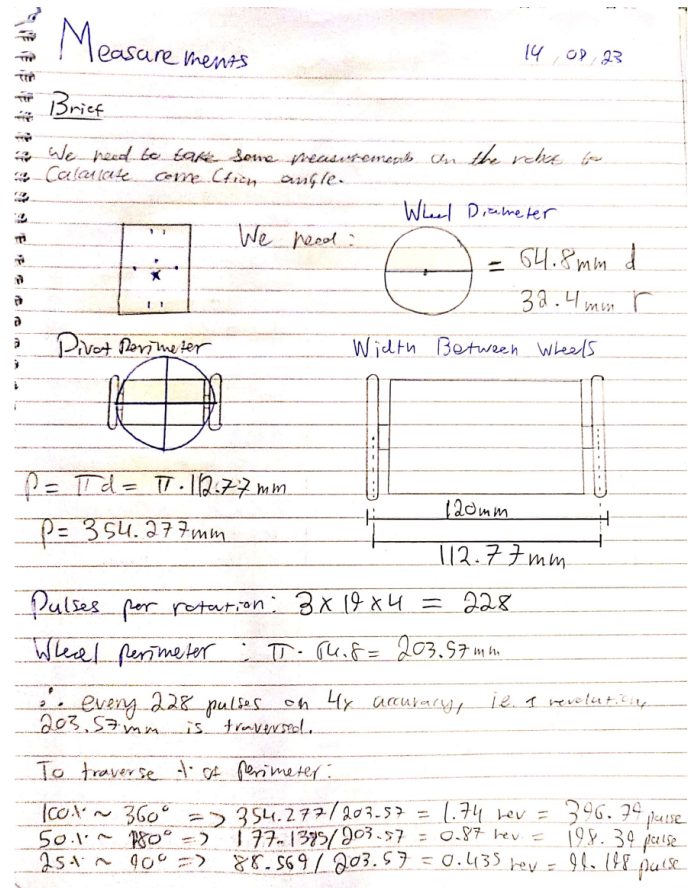 Measurements
14, 08, 23
Brief
We need to take some measurements on the robot to
Calculate correction angle.
We need:
Wheel Diameter
= 64.8mm d
32.4mm r
Pivot Perimeter
Width Between Wheels
P = πd = π·112.77mm
P = 354.277mm
120mm
112.77mm
Pulses per rotation: 3 x 19 x 4 = 228
Wheel perimeter : π· 64.8 = 203.57mm
∴ every 228 pulses on 4x accuracy, i.e 1 revolution,
203.57mm is traversed.
To traverse % of Perimeter:
100% ~ 360° => 354.277/203.57 = 1.74 rev = 396.79 pulse
50% ~ 180° => 177.1385/203.57 = 0.87 rev = 198.39 pulse
25% ~ 90° => 88.569/203.57 = 0.435 rev = pulse